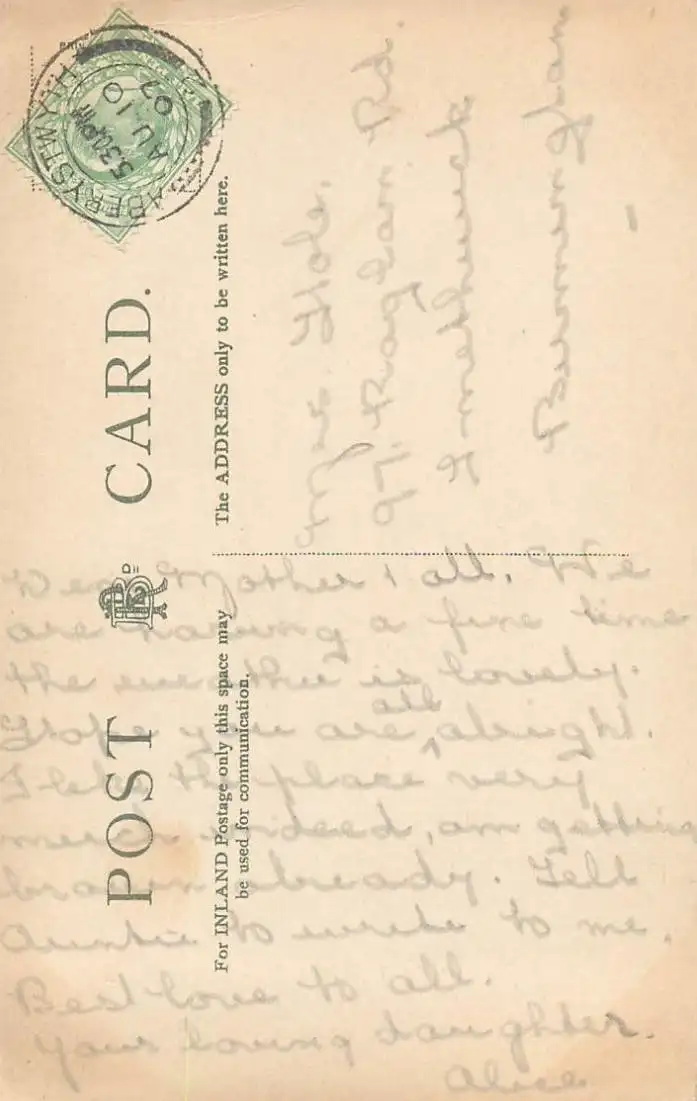 POST CARD.
For INLAND Postage only this space may
be used for communication.
The ADDRESS only to be written here.
ABERYSTWYTH
5.30PM
AU 10
Mrs.
97 Raglan Rd.
Smethwick
Dear Mother & all. We
are having a fine time
the weather is lovely.
Hope you are all alright.
I like the place very
much indeed, am getting
brown already. Tell
Auntie to write to me.
Best love to all.
Your loving daughter.
Alice